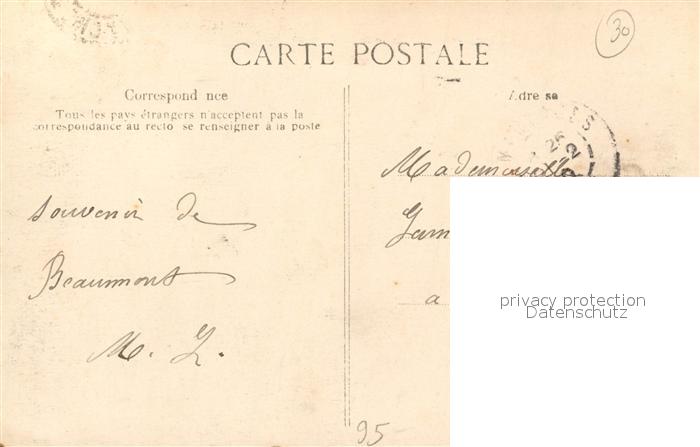 30
CARTE POSTALE
Correspond nce
Tous les pays étrangers n'acceptent pas la
correspondance au recto se renseigner à la poste
Souvenir de
Beaumont
M. L.
Adre se
26
Mademoiselle
a
privacy protection
Datenschutz
95